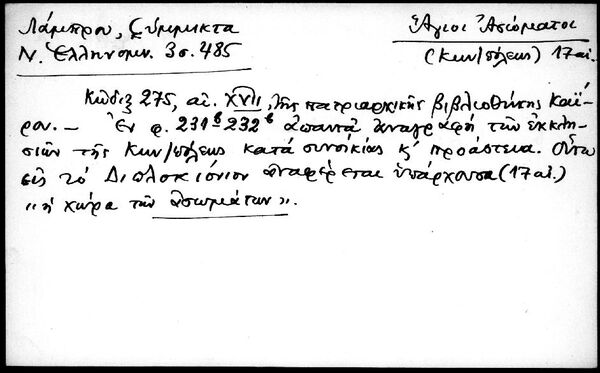 Λάμπρου, Σύμμικτα
Ν. Ἑλληνομν. 3 σ. 485
Ἅγιοι Ἀσώματοι
(Κων/πόλεως) 17 αἰ.
Κώδιξ 275, αἰ. XVII, τῆς πατριαρχικῆς βιβλιοθήκης Καΐ-
ρου. – Ἐν φ. 231β 232β ἀπαντᾶ ἀναγραφὴ τῶν ἐκκλη-
σιῶν τῆς Κων/πόλεως κατὰ συνοικίας κ' προάστεια. Οὕτω
εἰς τὸ Διπλοκιόνιον ἀναφέρεται ὑπάρχουσα (17 αἰ.)
«ἡ χώρα τῶν ἀσωμάτων».